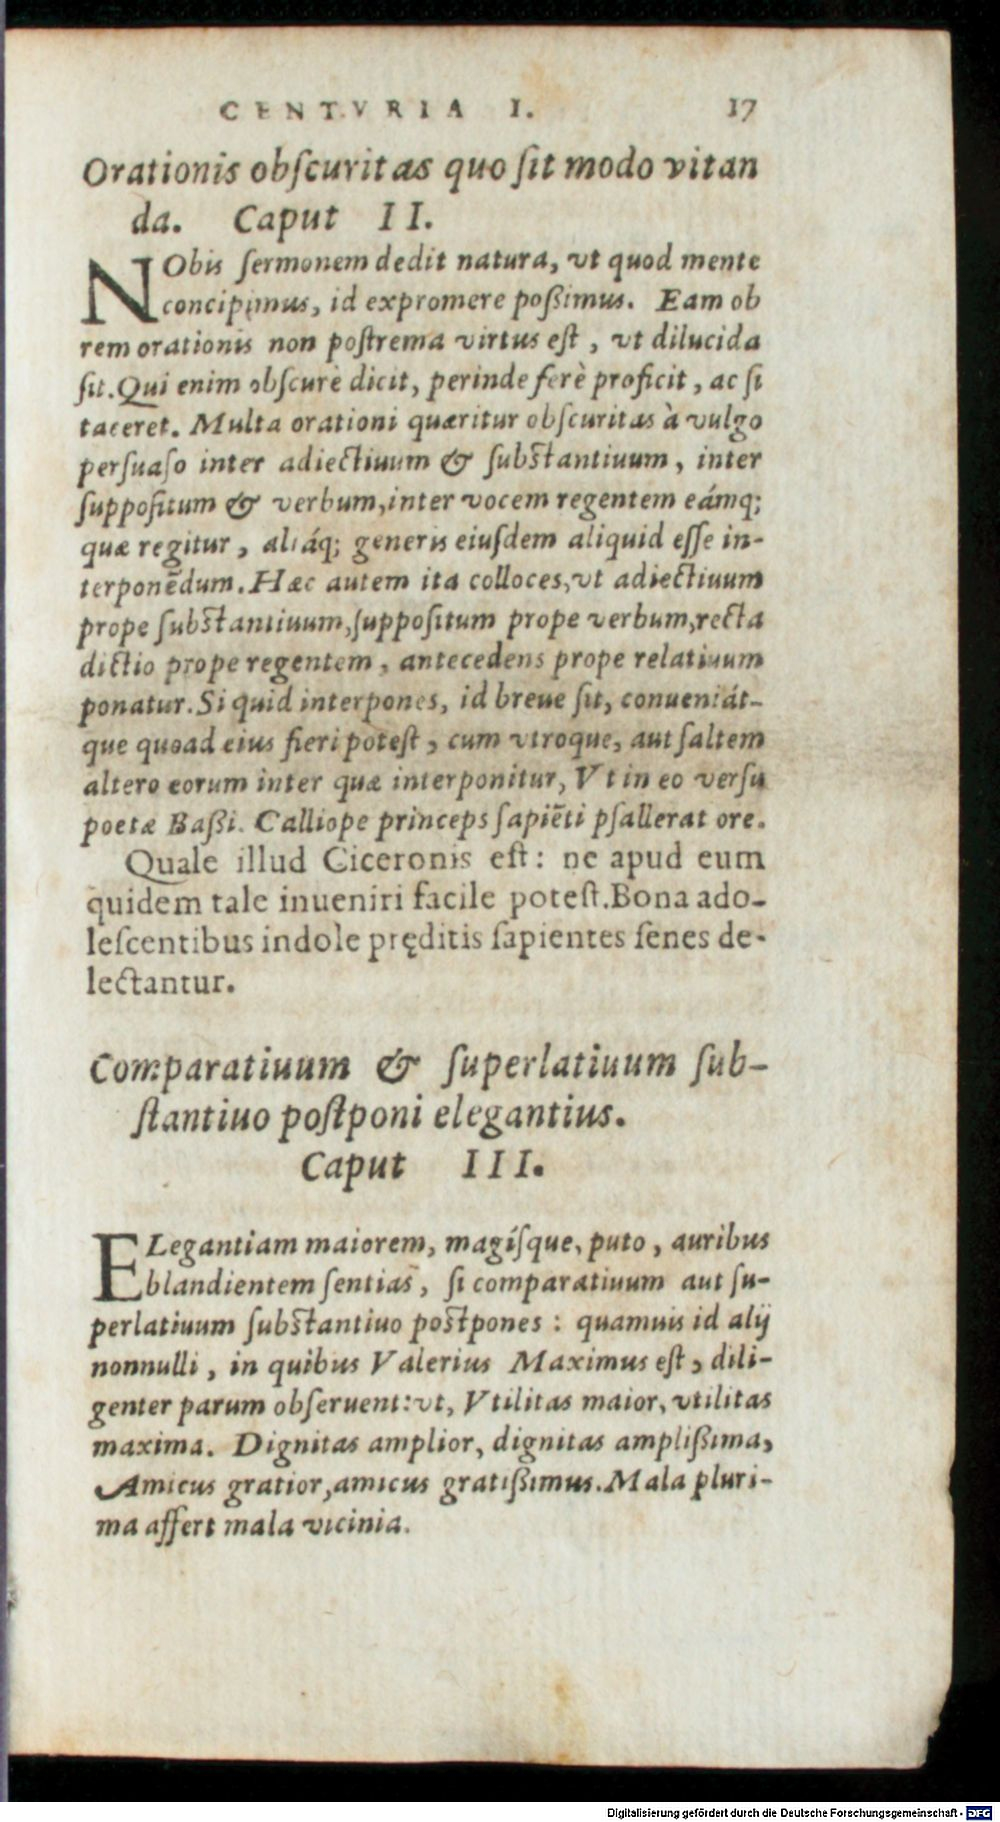 CENTVRIA I. 17
Orationis obſcuritas quo ſit modo vitan
da. Caput II.
NObis ſermonem dedit natura, vt quod mente
concipimus, id expromere poßimus. Eam ob
rem orationis non poſtrema virtus eſt, vt dilucida
ſit. Qui enim obſcurè dicit, perinde ferè proficit, ac ſi
taceret. Multa orationi quæritur obſcuritas à vulgo
perſuaſo inter adiectiuum & ſubſtantiuum, inter
ſuppoſitum & verbum, inter vocem regentem eámq;
quæ regitur, aliáq; generis eiuſdem aliquid eſſe in-
terponēdum. Hæc autem ita colloces, vt adiectiuum
prope ſubſtantiuum, ſuppoſitum prope verbum, recta
dictio prope regentem, antecedens prope relatiuum
ponatur. Si quid interpones, id breue ſit, conueniát-
que quoad eius fieri poteſt, cum vtroque, aut ſaltem
altero eorum inter quæ interponitur, Vt in eo verſu
poetæ Baßi. Calliope princeps ſapiēti pſallerat ore.
Quale illud Ciceronis eſt: ne apud eum
quidem tale inueniri facile poteſt. Bona ado-
leſcentibus indole pręditis ſapientes ſenes de-
lectantur.
Comparatiuum & ſuperlatiuum ſub-
ſtantiuo poſtponi elegantius.
Caput III.
ELegantiam maiorem, magíſque, puto, auribus
blandientem ſentias, ſi comparatiuum aut ſu-
perlatiuum ſubſtantiuo poſtpones: quamuis id alij
nonnulli, in quibus Valerius Maximus eſt, dili-
genter parum obſeruent: vt, Vtilitas maior, vtilitas
maxima. Dignitas amplior, dignitas amplißima,
Amicus gratior, amicus gratißimus. Mala pluri-
ma affert mala vicinia.
Digitalisierung gefördert durch die Deutsche Forschungsgemeinschaft - DFG